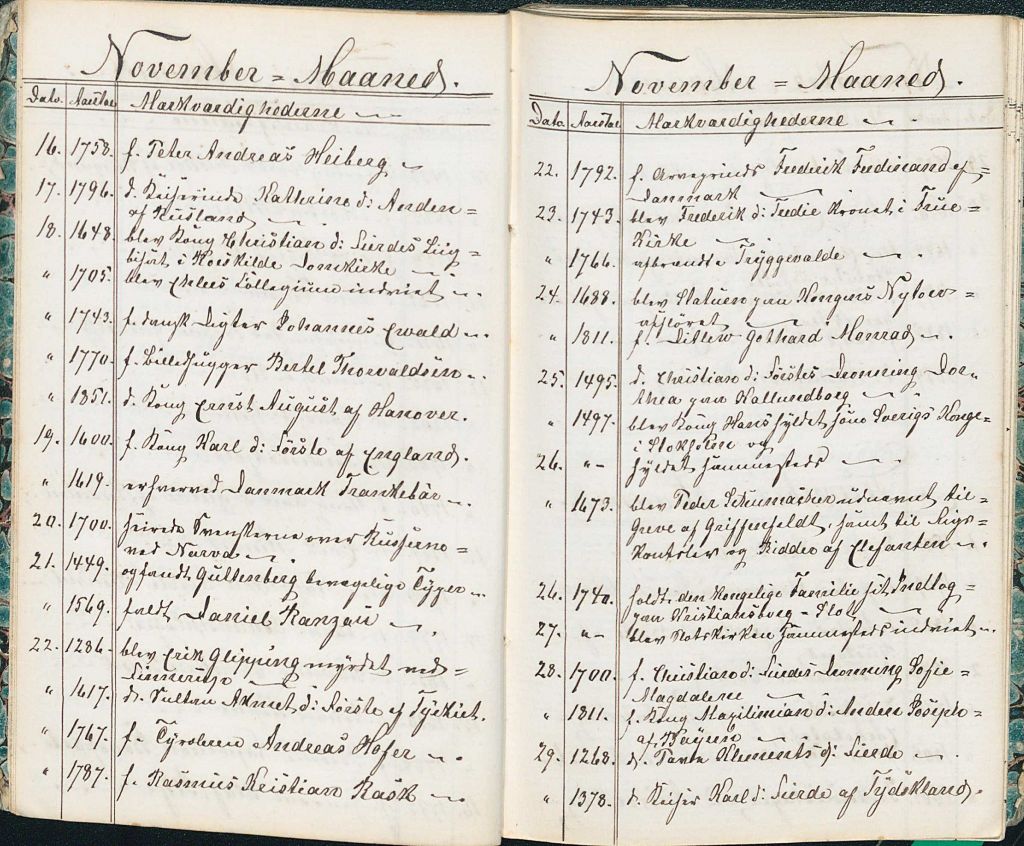 November = Maaned.
Dato. Aarstal Markværdighederne
16. 1758. f. Peter Andreas Heiberg
17. 1796. d. Keiserinde Kathrine d: Anden=
af Rusland
18. 1648. blev Kong Christian d: Fierdes Liig=
bisat i Roeskilde Domkirke
" 1705. blev Ehlers Collegium indviet
" 1743. f. dansk Digter Johannes Ewald
" 1770. f. Billedhugger Bertel Thorvaldsen
" 1851. d. Kong Ernst August af Hanover.
19. 1600. f. Kong Karl d: Første af England.
" 1619. erhverved Danmark Trankebar
20. 1700. seirede Svenskerne over Russerne=
ved Narva
21. 1449. opfandt Guttenberg bevægelige Typer
" 1569. faldt Daniel Ranzau
22. 1286. blev Erik Glipping myrdet ved=
Finnerup
" 1617. d. Sultan Akmet d: Første af Tyrkiet.
" 1767. f. Tyroleren Andreas Hofer
" 1787. f. Rasmus Kristian Rask
November = Maaned.
Dato. Aarstal Markværdighederne
22. 1792. f. Arveprinds Frederik Ferdinand af=
Danmark
23. 1743. blev Frederik d: Fredie Kronet i Frue=
Kirke
" 1766. afbrændte Tryggevalde
24. 1688. blev Statuen paa Kongens Nytorv=
afsløret
" 1811. f. Ditlew Gothard Monrad
25. 1495. d. Christian d: Førstes Dronning Dor=
thea paa Kallundborg
" 1497. blev Kong Hans hyldet som Sverigs Konge=
i Stokholm og
26. "-" hyldet sammesteds
" 1673. blev Peder Schumacher udnævnt til=
Greve af Griffenfeldt, samt til Rigs=
Kantsler og Ridder af Elefanten
26. 1740. holdt den Kongelige Familie sit Indtog=
paa Kristiansborg=Slot
27. "-" blev Slotskirken sammesteds indviet
28. 1700. f. Christian d: Siettes Dronning Sofie=
Magdalene
" 1811. f. Kong Maximilian d: Anden Joseph=
af Bayern
29. 1268. d. Pave Klements d: Fierde
" 1378. d. Keiser Karl d: Fierde af Tydskland.